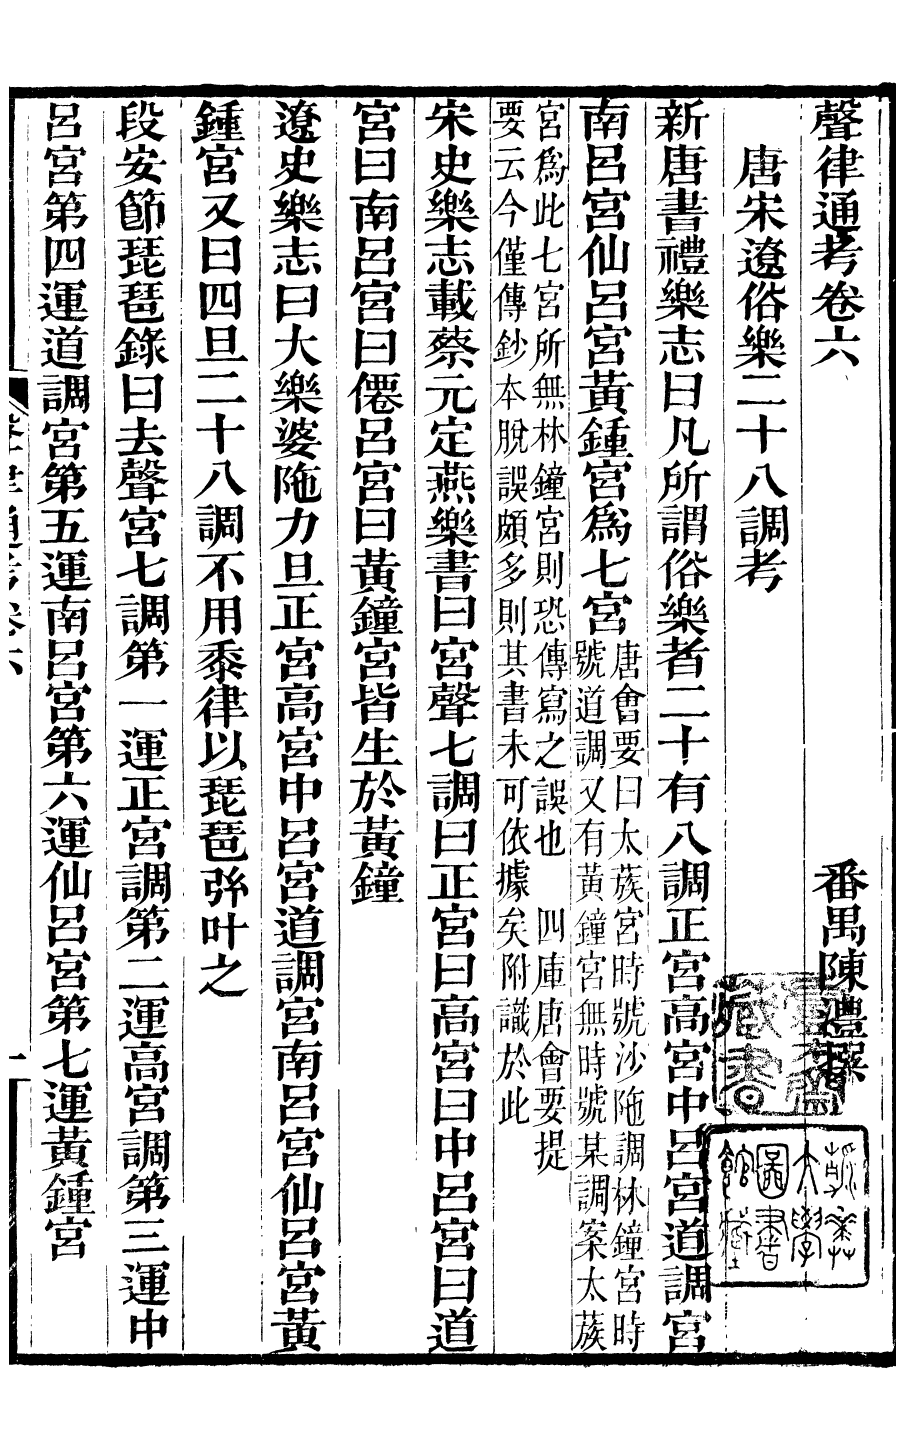 聲律通考卷六
番禺陳澧撰
唐宋遼俗樂二十八調考
新唐書禮樂志曰凡所謂俗樂者二十有八調正宮高宮中呂宮道調宮
南呂宮仙呂宮黃鍾宮爲七宮
唐會要曰太蔟宮時號沙陁調林鐘宮時
號道調又有黃鐘宮無時號某調案太蔟
宮爲此七宮所無林鐘宮則恐傳寫之誤也 四庫唐會要提
要云今僅傳鈔本脫誤頗多則其書未可依據矣附識於此
宋史樂志載蔡元定燕樂書曰宮聲七調曰正宮曰高宮曰中呂宮曰道
宮曰南呂宮曰僊呂宮曰黃鐘宮皆生於黃鐘
遼史樂志曰大樂婆陁力旦正宮高宮中呂宮道調宮南呂宮仙呂宮黃
鍾宮又曰四旦二十八調不用黍律以琵琶弦叶之
段安節琵琶錄曰去聲宮七調第一運正宮調第二運高宮調第三運中
呂宮第四運道調宮第五運南呂宮第六運仙呂宮第七運黃鍾宮
聲律通考卷六
一
藏書
大學
圖書
館